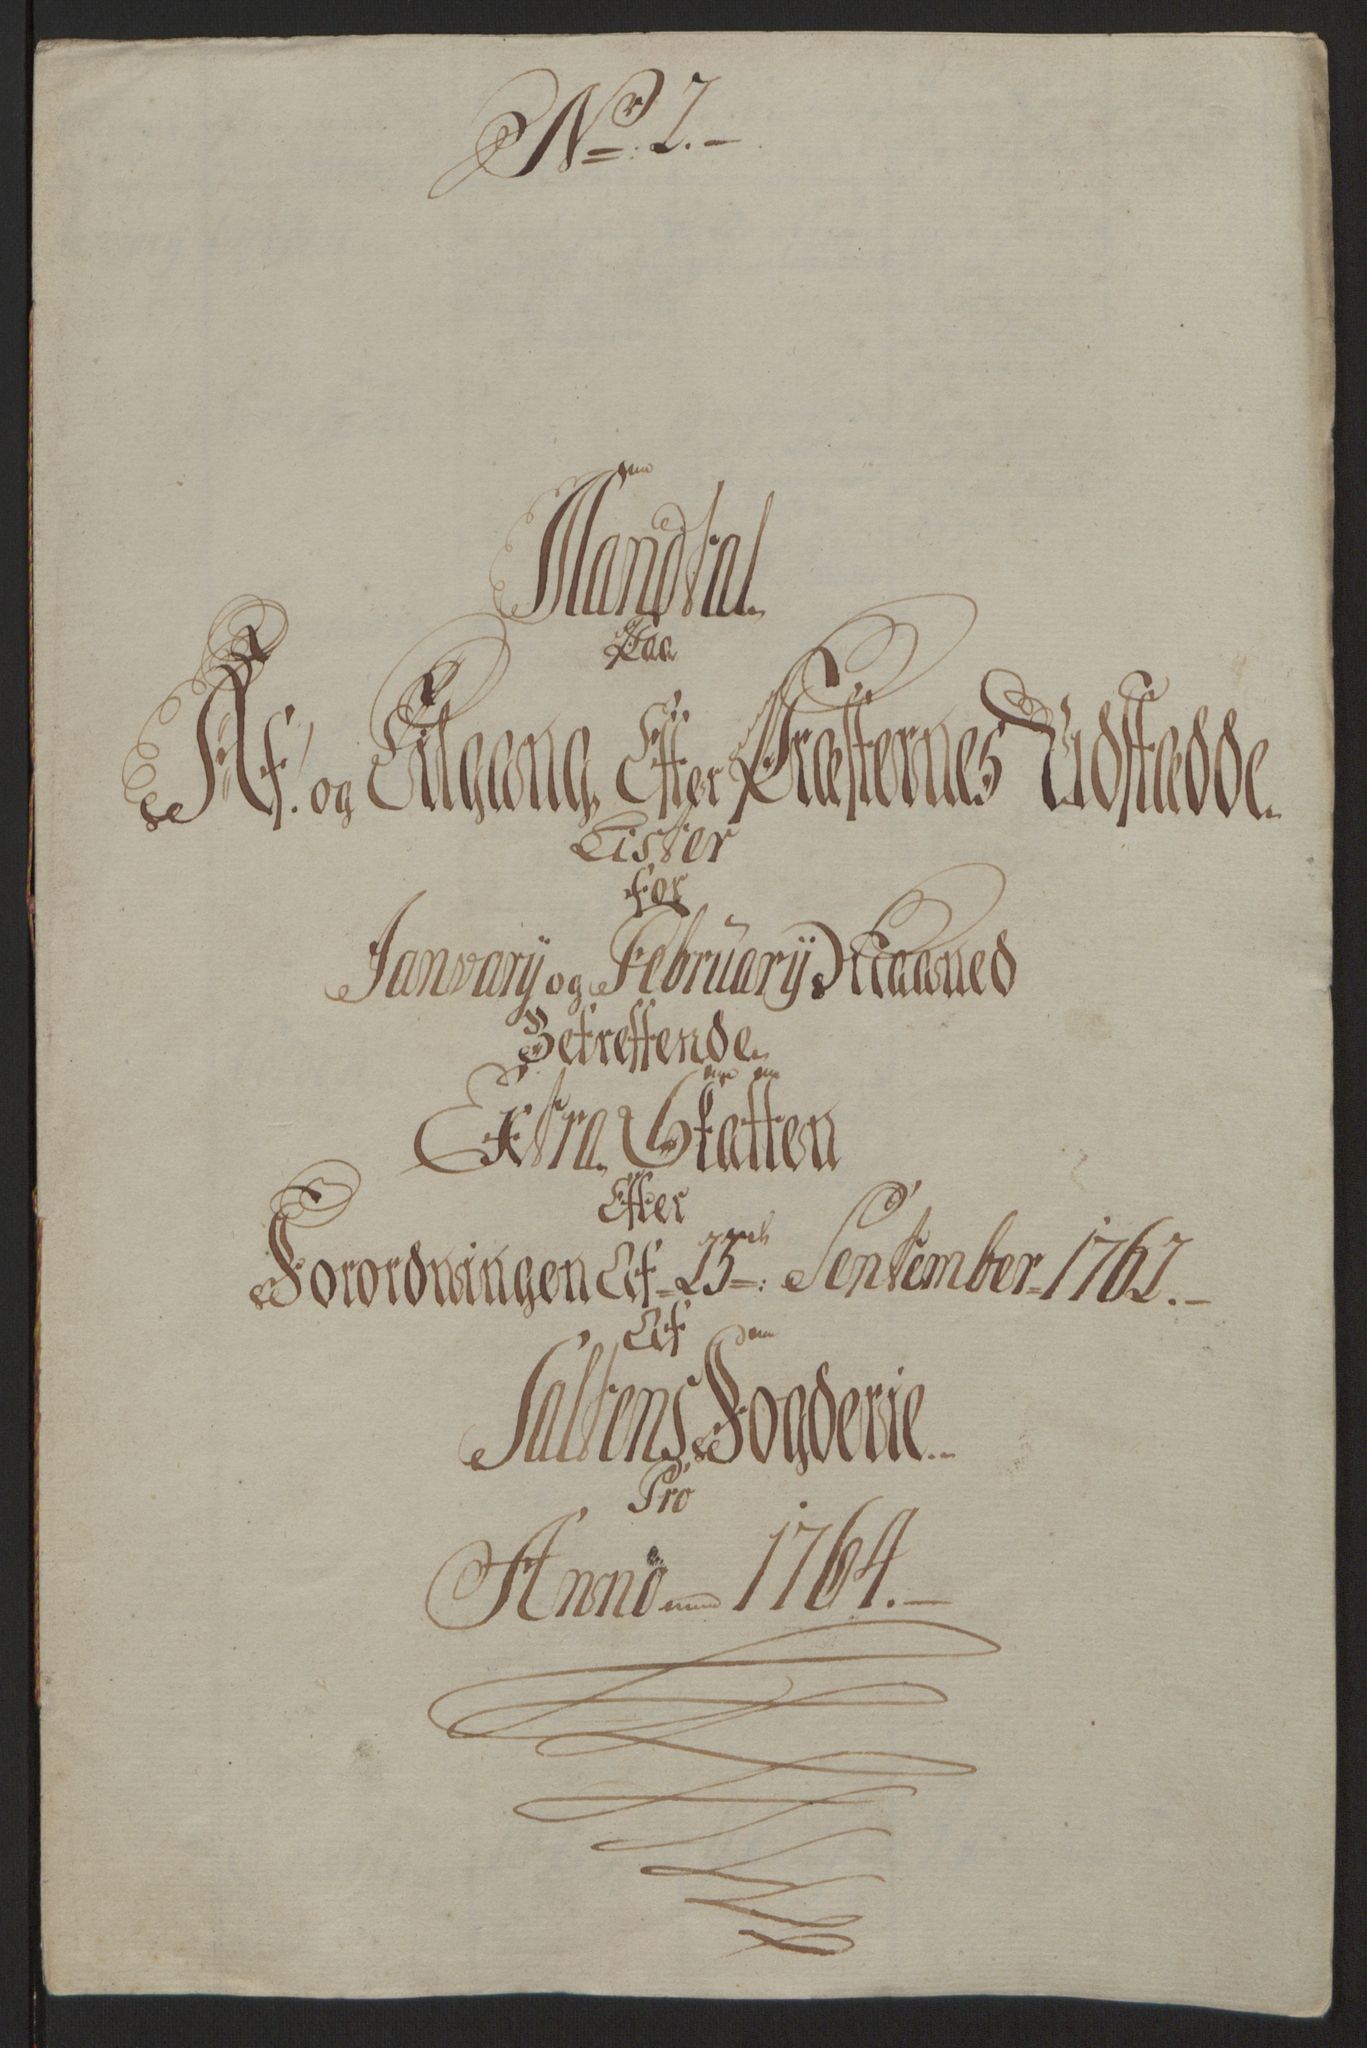 No: 2.
Mandtal
Paa
Af- og Tilgang Efter Præsternes Udstædde
Lister
for
Janvarij og Februarij Maaned
Betreffende
Extra Skatten
Efter
Forordningen Af 23de: September 1762.
Af
Saltens Fogderie
Pro
Anno 1764.